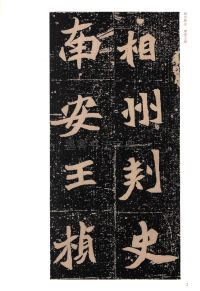 相州刾史
南安王楨